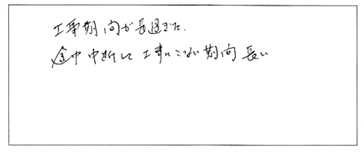 工事期間が長過ぎた。
途中中断して工事にこない期間長い